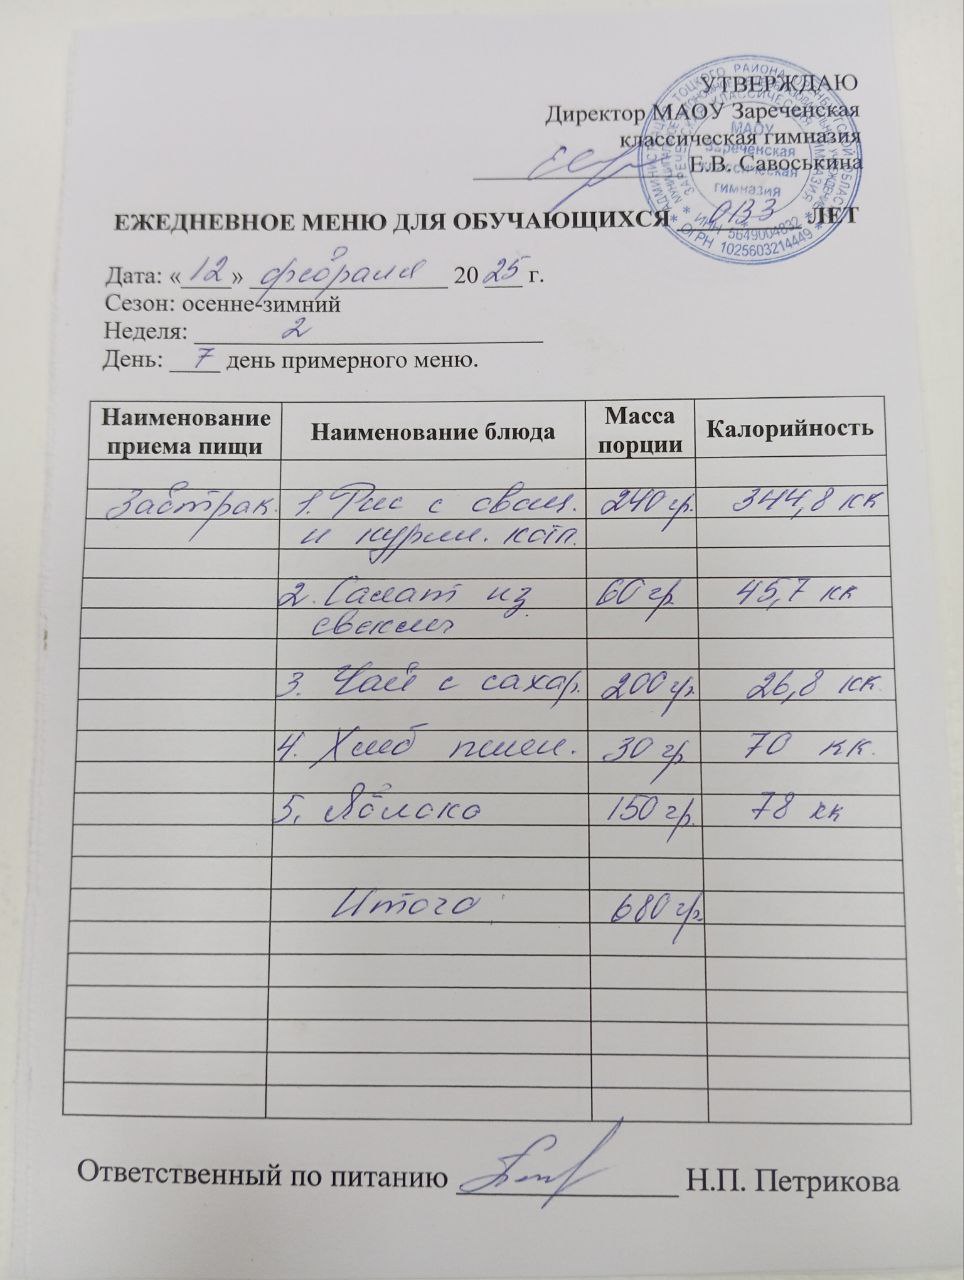 УТВЕРЖДАЮ
Директор МАОУ Зареченская
классическая гимназия
Е.В. Савоськина
МАОУ
Зареченская
классическая
гимназия
ИНН 5649004832
ОГРН 1025603214449
ЕЖЕДНЕВНОЕ МЕНЮ ДЛЯ ОБУЧАЮЩИХСЯ ОВЗ ЛЕТ
Дата: «12» февраля 2025 г.
Сезон: осенне-зимний
Неделя: 2
День: 7 день примерного меню.
Наименование приема пищи Наименование блюда Масса порции Калорийность
Завтрак. 1. Рис с овощ. 240 гр. 344,8 кк
и курин. котл.
2. Салат из 60 гр 45,7 кк
свеклы
3. Чай с сахар. 200 гр. 26,8 кк.
4. Хлеб пшен. 30 гр 70 кк.
5. Яблоко 150 гр. 78 кк
Итого: 680 гр.
Ответственный по питанию Н.П. Петрикова